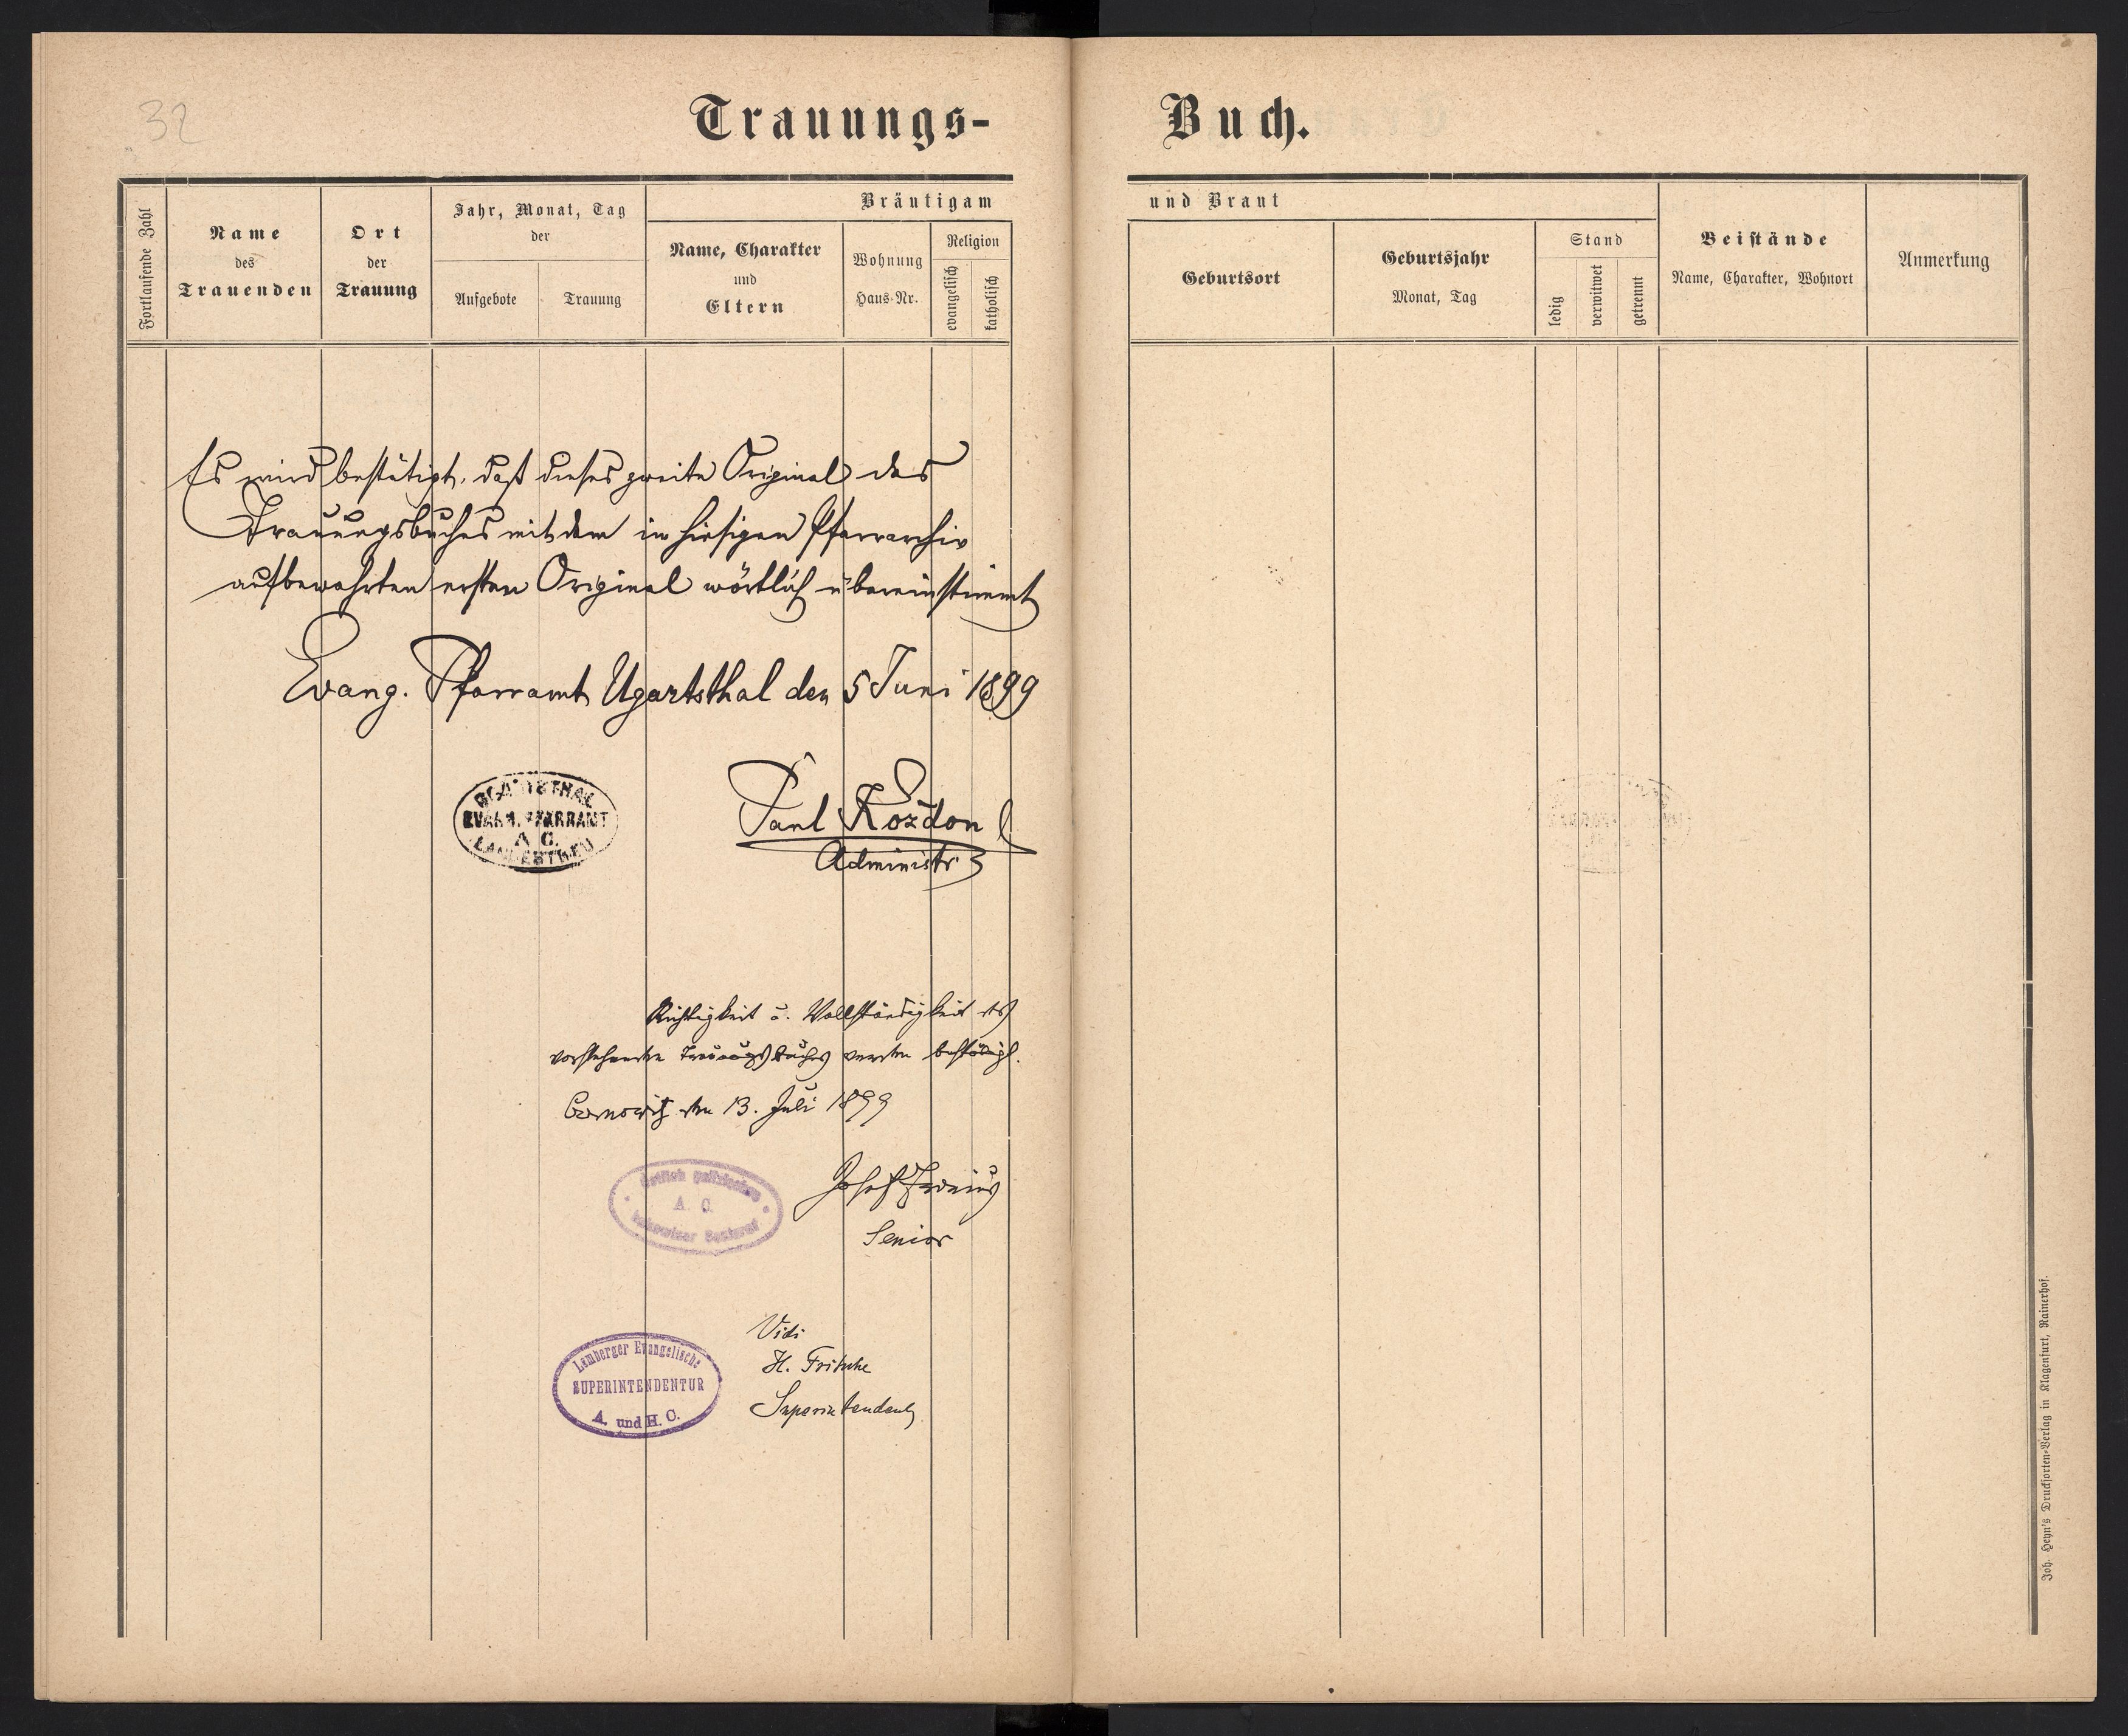 32
Trauungs-Buch.
Fortlaufende Zahl
Name
des
Trauenden
Ort
der
Trauung
Jahr, Monat, Tag
der
Aufgebote
Trauung
Bräutigam und Braut
Name, Charakter
und
Eltern
Wohnung
Haus-Nr.
Religion
evangelisch
katholisch
Geburtsort
Geburtsjahr
Monat, Tag
Stand
ledig
verwitwet
getrennt
Beistände
Name, Charakter, Wohnort
Anmerkung
Es wird bestätigt, daß dieses zweite Original des
Trauungsbuches mit dem im hiesigen Pfarrarchiv
aufbewahrten ersten Original wörtlich übereinstimmt
Evang. Pfarramt Ugartsthal den 5 Juni 1899
EVANG. PFARRAMT
A. C.
LANDESTREU
Paul Kożdon
Administr.
Richtigkeit u. Vollständigkeit des
vorstehenden Trauungsbuches werden bestätigt.
den 13. Juli 1899
A. C.
Josef
Senior
Lemberger Evangelische
SUPERINTENDENTUR
A. und H. C.
Vidi
H. Fritsche
Superintendent
Joh. Heyn's Drucksorten-Verlag in Klagenfurt, Rainerhof.